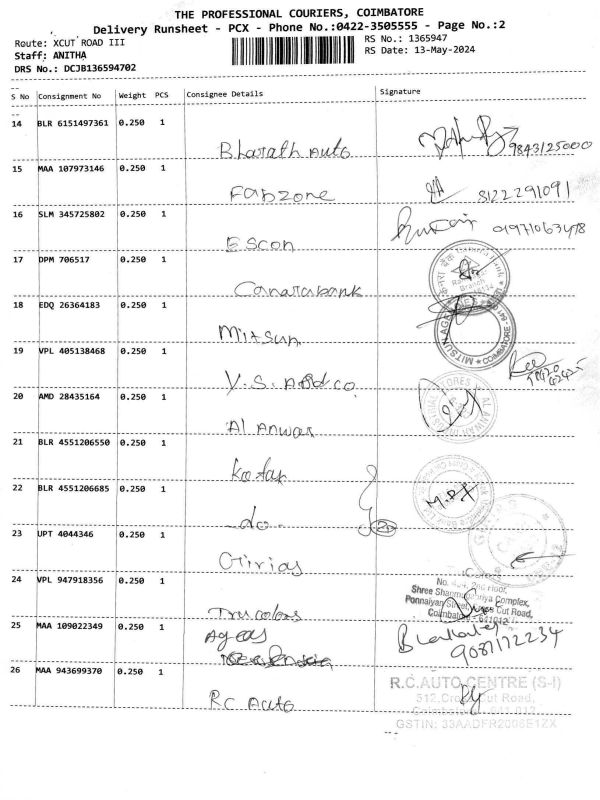 THE PROFESSIONAL COURIERS, COIMBATORE
Delivery Runsheet - PCX - Phone No.:0422-3505555 - Page No.:2
Route: XCUT ROAD III
RS No.: 1365947
Staff: ANITHA
RS Date: 13-May-2024
DRS No.: DCJB136594702
S No Consignment No Weight PCS Consignee Details Signature
14 BLR 6151497361 0.250 1
Bharath Auto 9843125000
15 MAA 107973146 0.250 1
Fabzone 8122291091
16 SLM 345725802 0.250 1
Escon
17 DPM 706517 0.250 1
Canarabank
18 EDQ 26364183 0.250 1
Mitsun
19 VPL 405138468 0.250 1
V.S. And co
20 AMD 28435164 0.250 1
Al Anwar
21 BLR 4551206550 0.250 1
Kotak
22 BLR 4551206685 0.250 1
-do-
23 UPT 4044346 0.250 1
Girias
24 VPL 947918356 0.250 1
Complex,
Cut Road,
Trucolors
25 MAA 109022349 0.250 1
Ageas 9087172234
26 MAA 943699370 0.250 1
R.C.AUTO CENTRE (S-I)
512, Cross Cut Road,
RC Auto
GSTIN: 33AADFR2006E1ZX